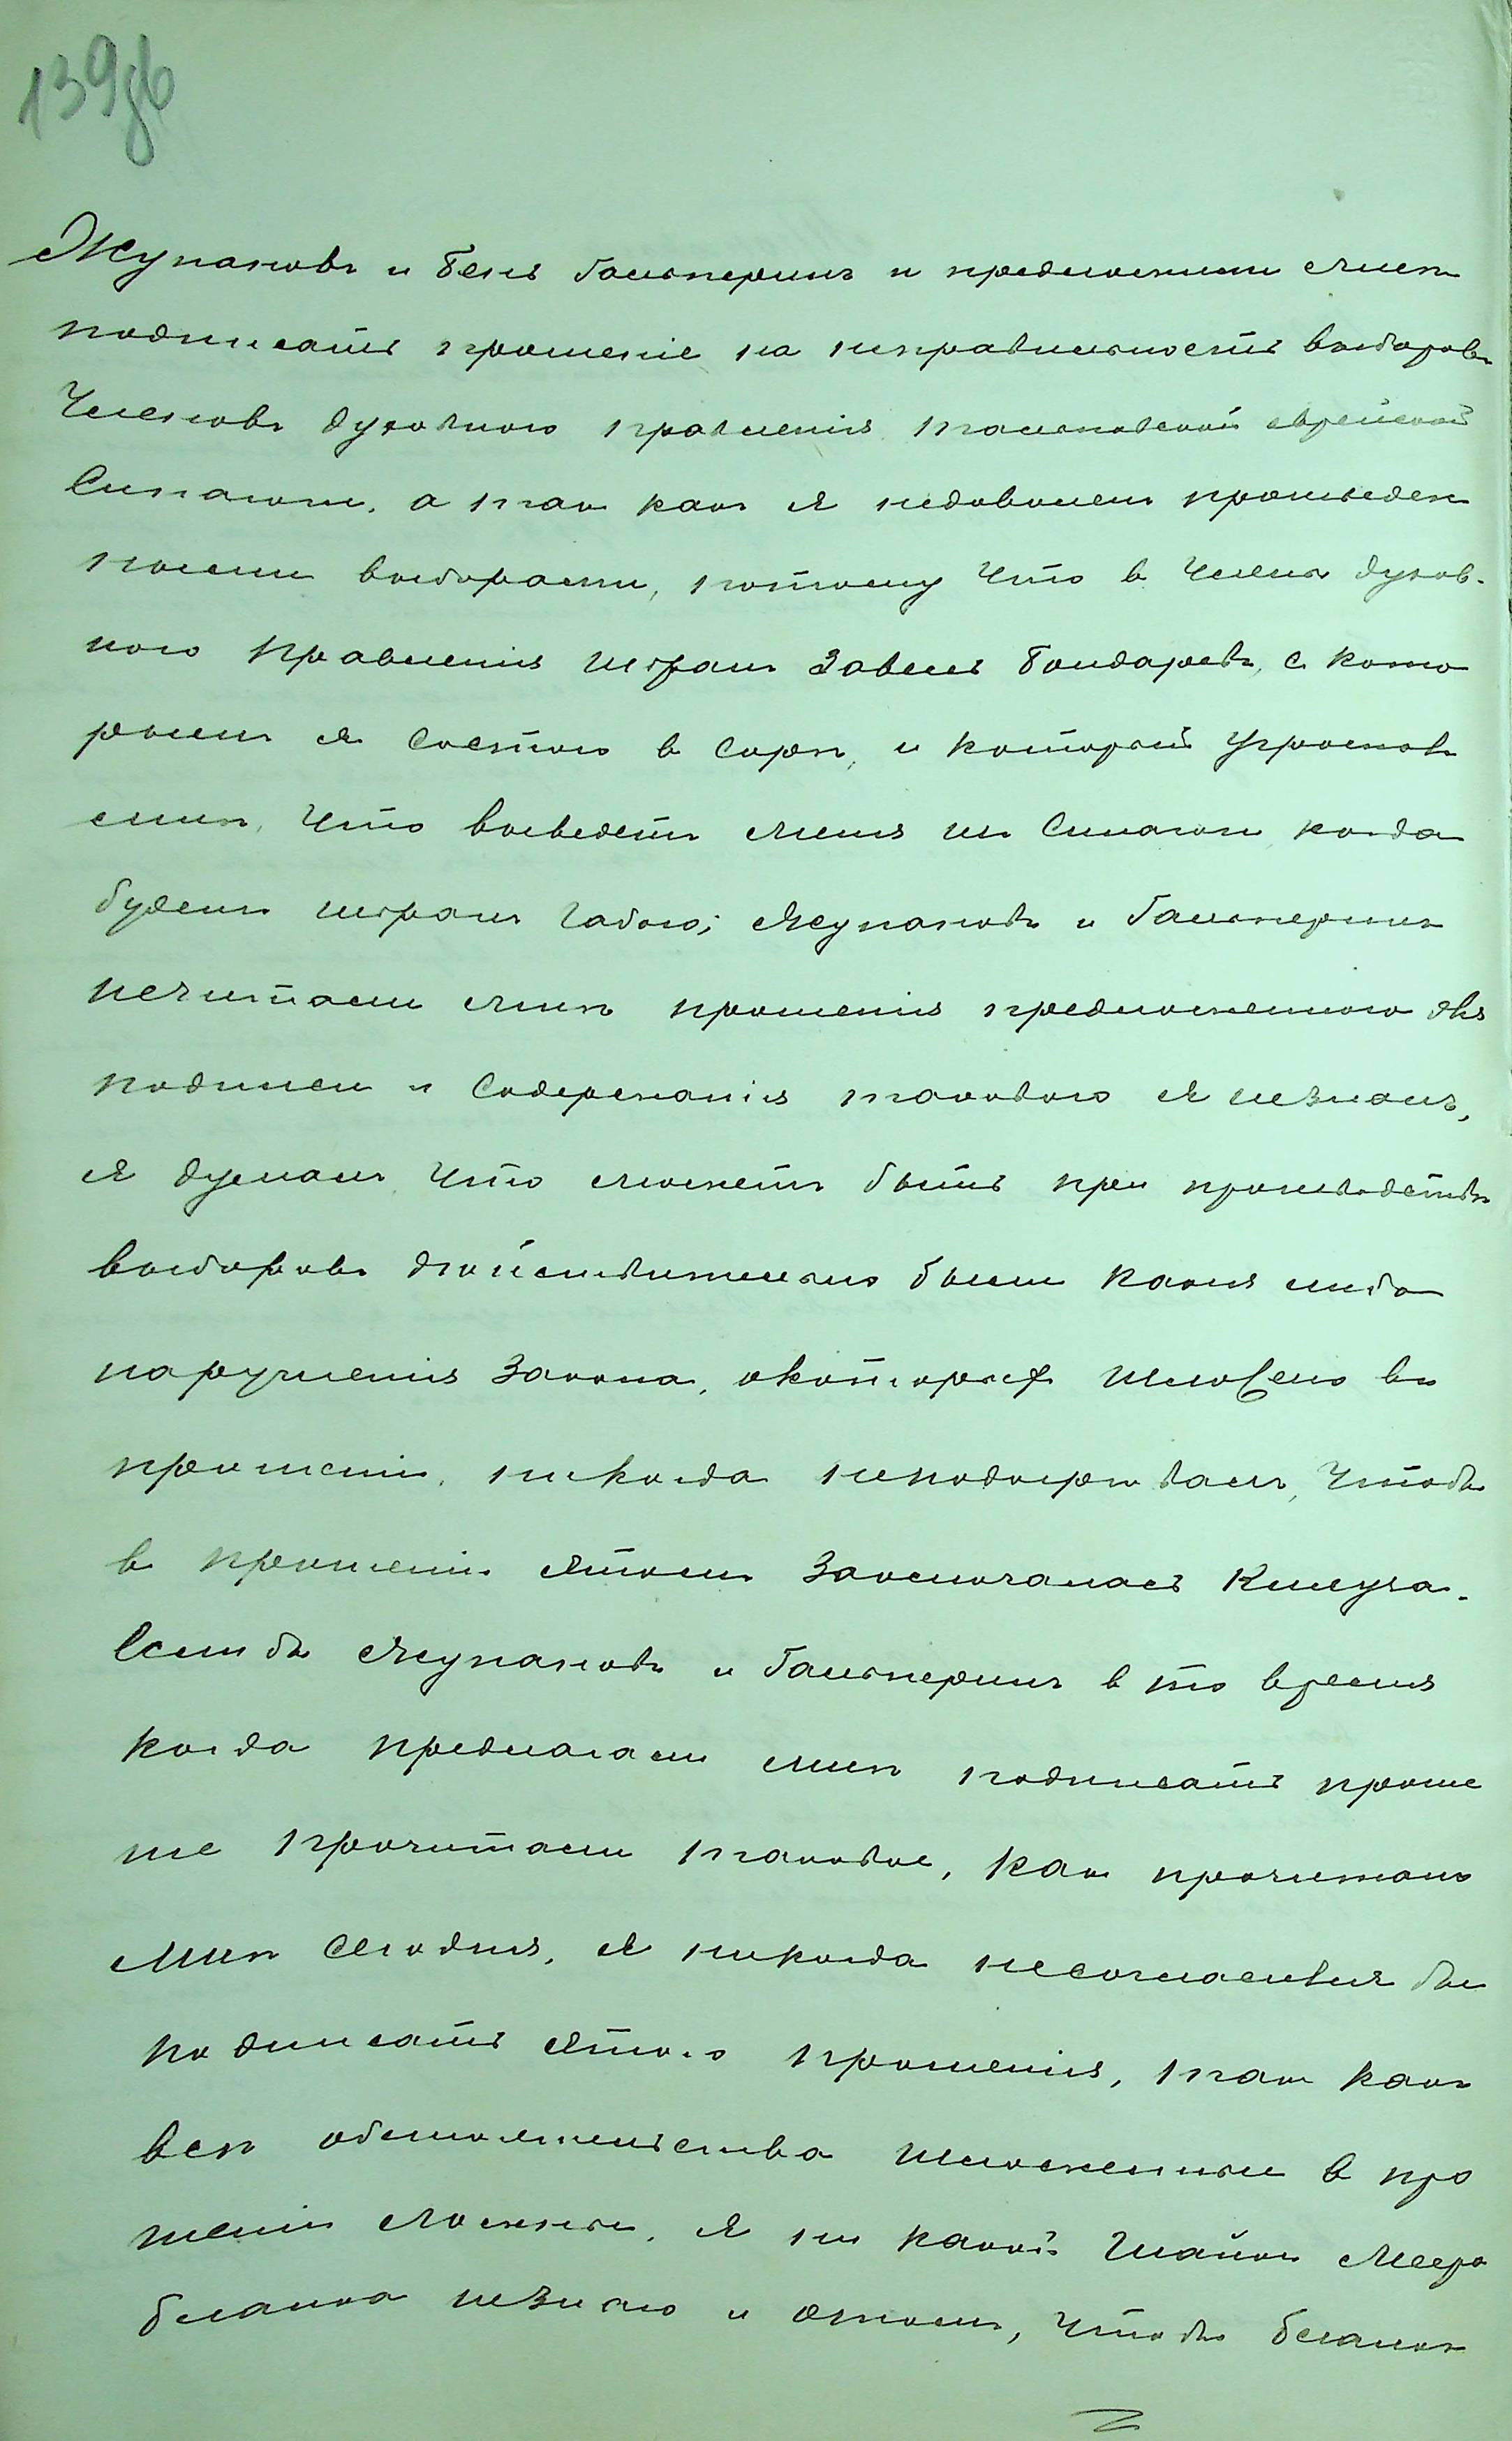 139об
Жупановъ и Бень Гальперинъ и предложили мнѣ
подписать прошеніе на неправильность выборовъ
Членовъ духовного правленія тальновской еврейской
Синагоги, а такъ какъ я недоволенъ произведен
ными выборами, потому что въ Члены духов-
ного правленія избранъ Завель Бондаревъ, с кото
рымъ я состою в сорѣ, и который угрожалъ
мнѣ, что выведетъ меня изъ Синагоги когда
будетъ избранъ габою; Жупановъ и Гальперинъ
нечитали мнѣ прошенія предложенного для
подписи и Содержанія такового я незналъ,
я думалъ что можетъ быть при производствѣ
выборовъ дѣйствительно были какія либо
нарушенія Закона, окоторыхъ изложено въ
прошеніи, никогда неподозрѣвалъ, чтобы
въ прошеніи этомъ Заключалась Кляуза.
Если бы Жупановъ и Гальперинъ в то время
когда предлагали мнѣ подписать проше
ніе прочитали таковое, какъ прочитано
мнѣ Сегодня, я никогда несогласился бы
подписать этого прошенія, такъ какъ
всѣ обстоятельства изложенныя в про
шеніи ложны, я ни какой Шайки Меера
Бланка незнаю и отомъ, чтобы Бланкъ